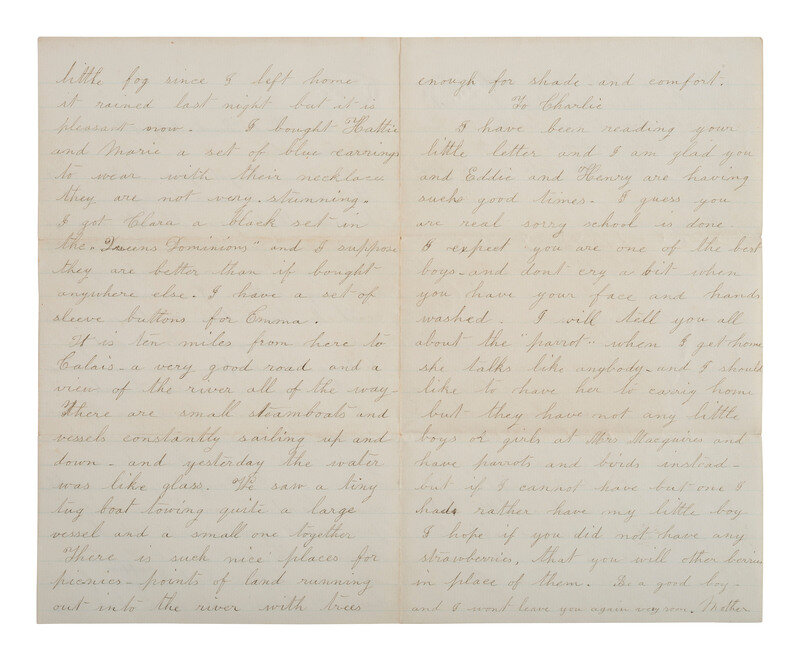 little fog since I left home
it rained last night but it is
pleasant now. I bought Hattie
and Marie a set of blue earrings
to wear with their necklace
they are not very stunning.
I got Clara a black set in
the "Queens Dominions" and I suppose
they are better than if bought
anywhere else. I have a set of
sleeve buttons for Emma.
It is ten miles from here to
Calais - a very good road and a
view of the river all of the way -
There are small steamboats and
vessels constantly sailing up and
down - and yesterday the water
was like glass. We saw a tiny
tug boat towing quite a large
vessel and a small one together
There is such nice places for
picnics - points of land running
out into the river with trees
enough for shade and comfort.
To Charlie
I have been reading your
little letter and I am glad you
and Eddie and Henry are having
such good times. I guess you
are real sorry school is done.
I expect you are one of the best
boys - and dont cry a bit when
you have your face and hands
washed. I will tell you all
about the "parrot" when I get home
she talks like anybody - and I should
like to have her to carry home
but they have not any little
boys or girls at Mrs Macguires and
have parrots and birds instead -
but if I cannot have but one I
had rather have my little boy
I hope if you did not have any
strawberries, that you will other berries
in place of them. Be a good boy -
and I wont leave you again very soon. Mother